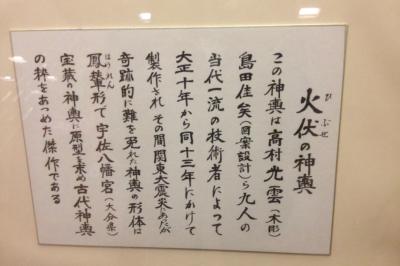 火伏の神輿
ひぶせ
この神輿は高村光雲(木彫)
島田佳矣(図案設計)ら九人の
当代一流の技術者によって
大正十年から同十三年にかけて
製作されその間関東大震災にあたが
奇跡的に難を免れた神輿の形体は
鳳輦形で宇佐八幡宮(大分県)
ほうれん
宝蔵の神輿に原型を求め古代神輿
の粋をあつめた傑作である